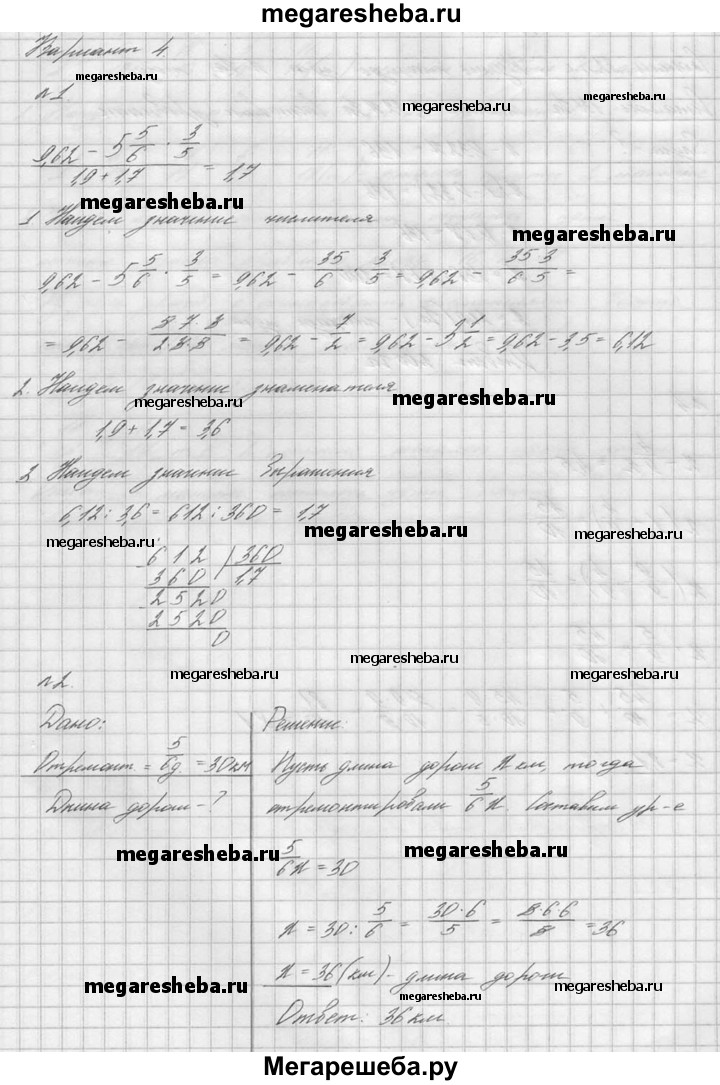 megaresheba.ru
Вариант 4.
megaresheba.ru
megaresheba.ru
megaresheba.ru
№1
(9,62 - 5 5/6 · 3/5) / (1,9 + 1,7) = 1,7
megaresheba.ru
megaresheba.ru
1 Найдем значение числителя
megaresheba.ru
9,62 - 5 5/6 · 3/5 = 9,62 - 35/6 · 3/5 = 9,62 - 35·3/6·5 =
= 9,62 - 5·7·3/2·3·5 = 9,62 - 7/2 = 9,62 - 3 1/2 = 9,62 - 3,5 = 6,12
2. Найдем значение знаменателя
megaresheba.ru
megaresheba.ru
1,9 + 1,7 = 3,6
3 Найдем значение Выражения
6,12 : 3,6 = 612 : 360 = 1,7
megaresheba.ru
megaresheba.ru
megaresheba.ru
612 | 360
360 | 1,7
2520
2520
0
№2.
megaresheba.ru
megaresheba.ru
Дано:
Решение:
Отремонт. = 5/6 д. = 30 км
Длина дороги - ?
Пусть длина дороги x км, тогда
отремонтировали 5/6 x. Составим ур-е
megaresheba.ru
megaresheba.ru
5/6 x = 30
x = 30 : 5/6 = 30·6/5 = 5·6·6/5 = 36
x = 36 (км) - длина дороги
megaresheba.ru
megaresheba.ru
megaresheba.ru
Ответ: 36 км
Мегарешеба.ру